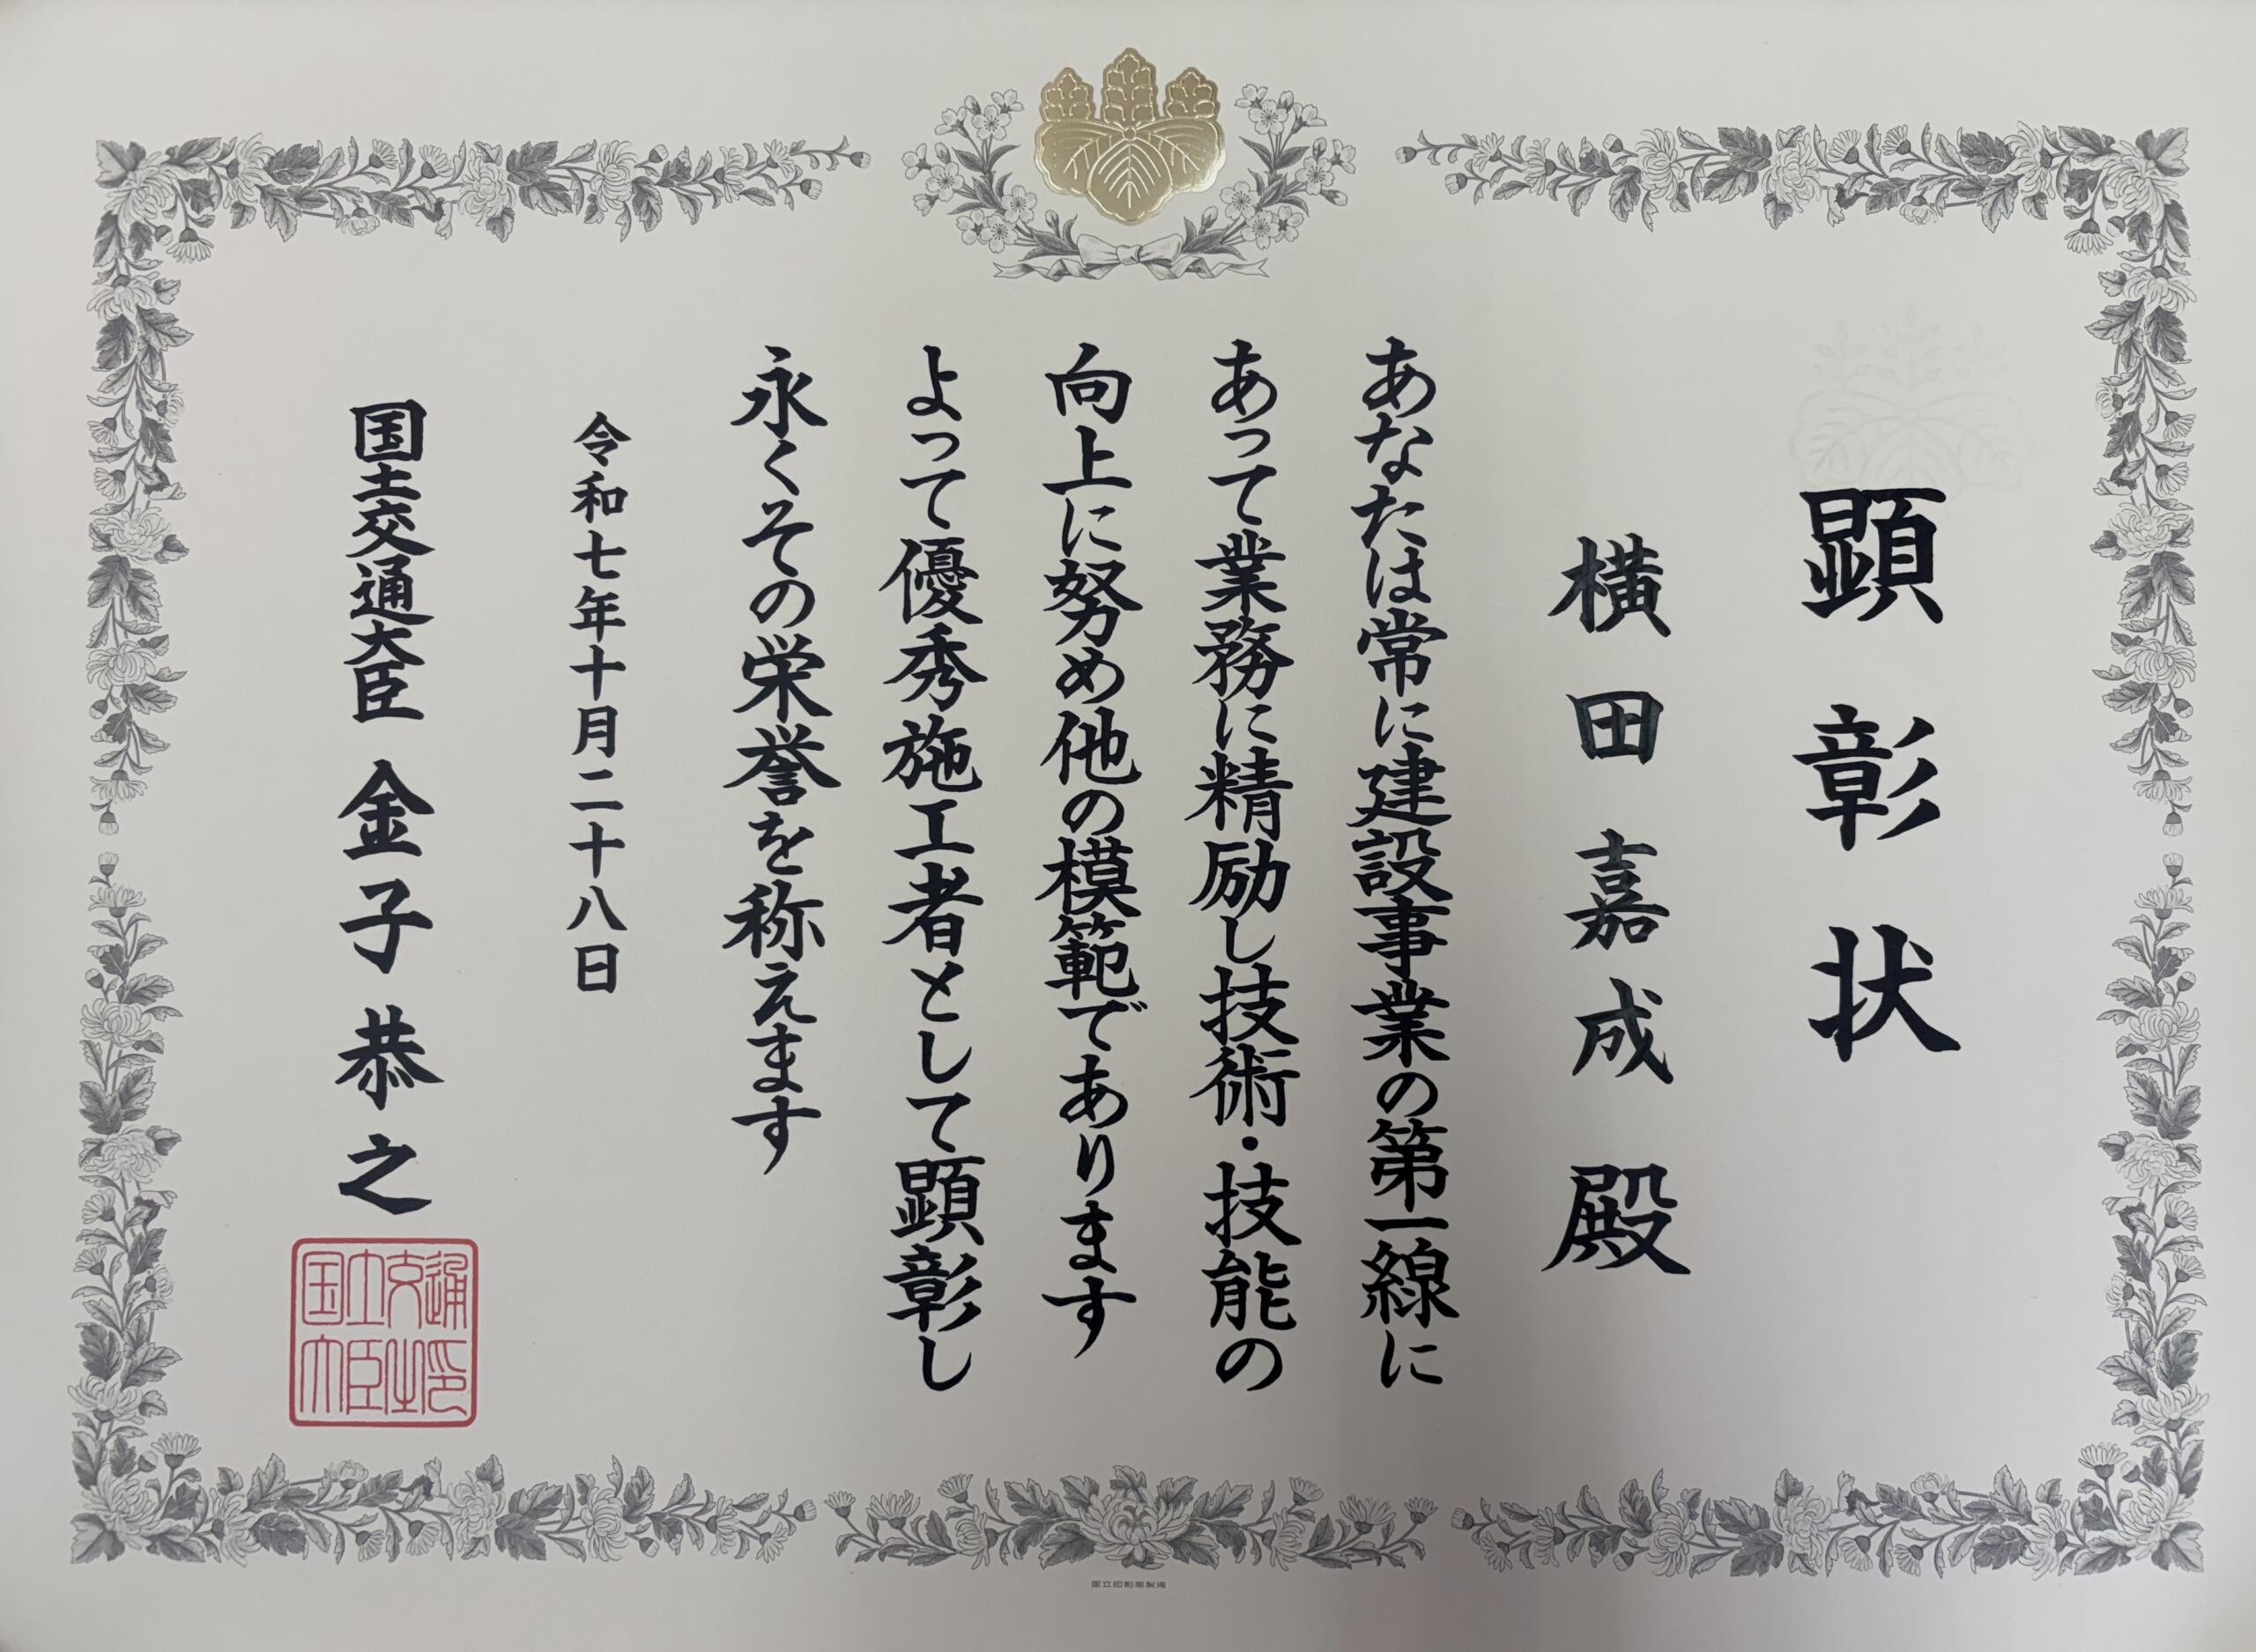 顕彰状
横田嘉成殿
あなたは常に建設事業の第一線に
あって業務に精励し技術・技能の
向上に努め他の模範であります
よって優秀施工者として顕彰し
永くその栄誉を称えます
令和七年十月二十八日
国土交通大臣 金子恭之
国土交通
大臣之印
国立印刷局製造